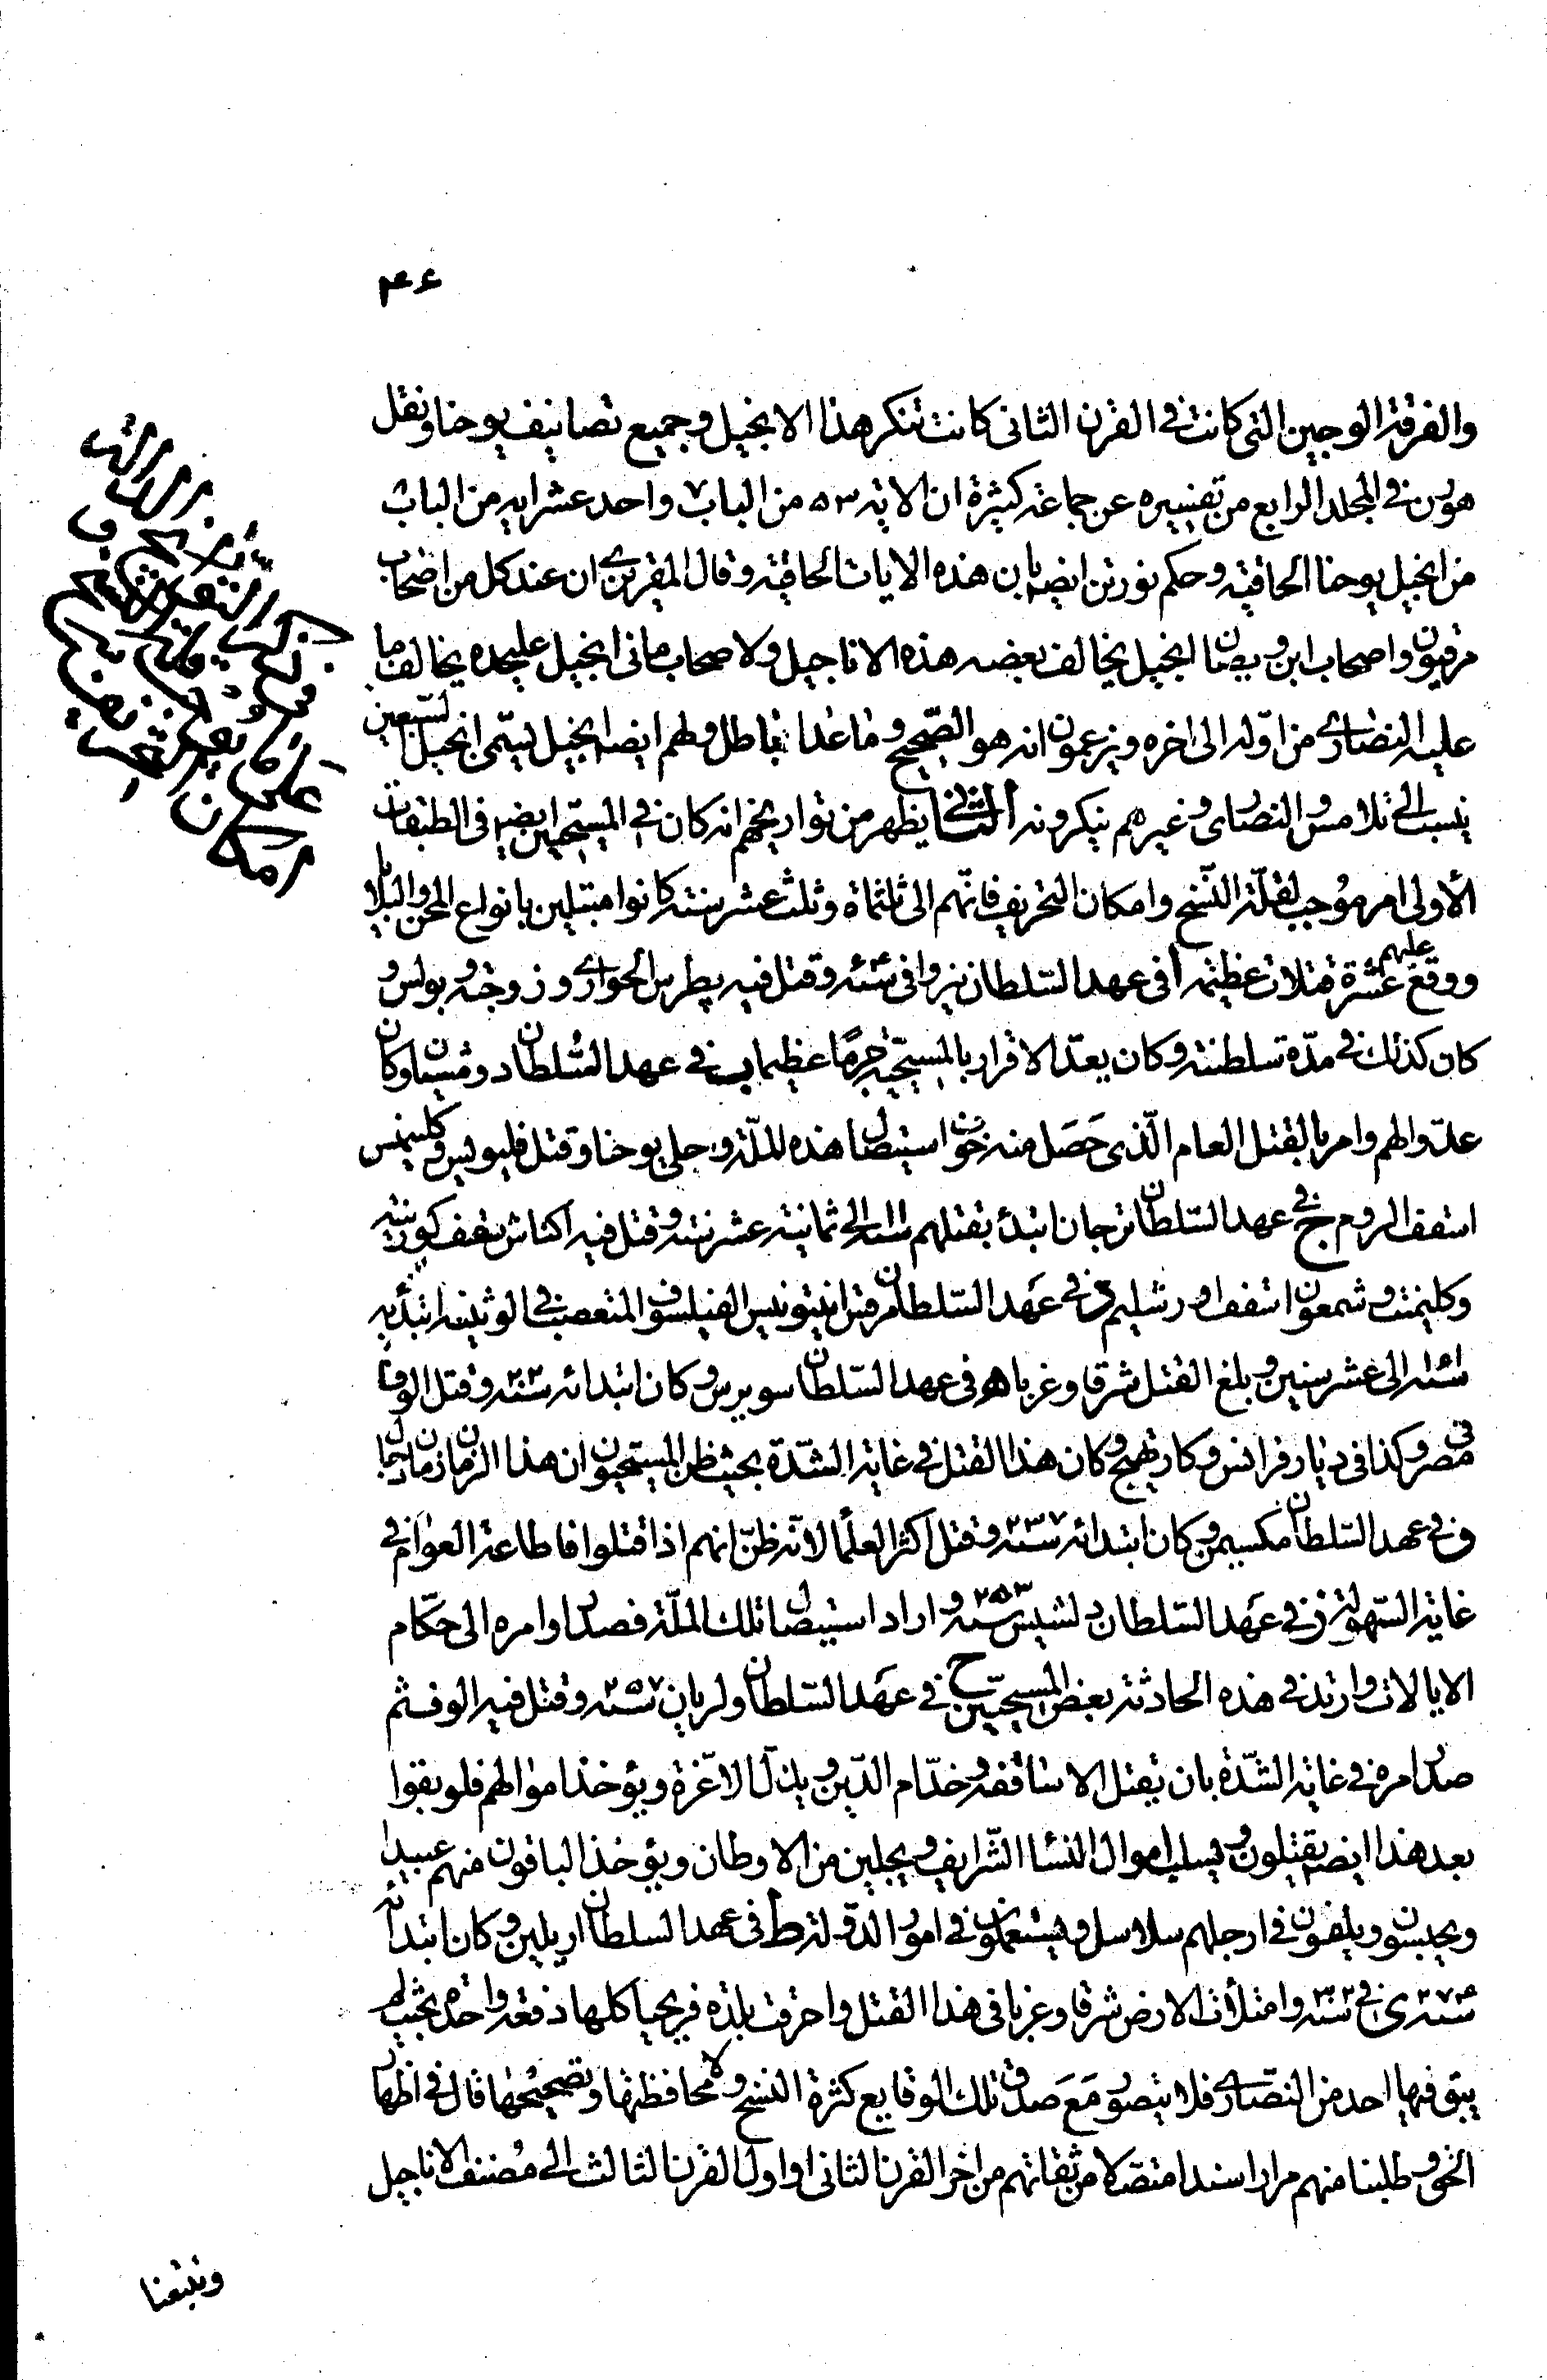 ۴۶
والفرقة الوجين التى كانت فى القرن الثانى كانت تنكر هذا الانجيل وجميع تصانيف يوحنا ونقل
هورن فى المجلد الرابع من تفسيره عن جماعة كثيرة ان الاية ۵۳ من الباب ۷ واحد عشر اية من الباب ۸
من انجيل يوحنا الحاقية وحكم نورتن ايضا بان هذه الايات الحاقية وقال المقريزى ان عند كل من اصحاب
مرقيون واصحاب ابن ديصان انجيل يخالف بعضه هذه الاناجيل ولاصحاب مانى انجيل عليحده يخالف ما
عليه النصارى من اوله الى اخره ويزعمون انه هو الصحيح وماعداه باطل ولهم ايضا انجيل يسمى انجيل السبعين
ينسب الى تلامس والنصارى وغيرهم ينكرونه الثالث يظهر من تواريخهم انه كان فى المسيحيين ايضا فى الطبقات
الأولى امر موجب لقلة النسخ وامكان التحريف فانهم الى ثلثماة وثلث عشر سنة كانوا مبتلين بانواع المحن والبلايا
ووقع عليهم عشرة قتلات عظيمة ا فى عهد السلطان نيرو فى سنة ۶۴ وقتل فيه پطرس الحوارى وزوجته وبولس و
كان كذلك فى مدة سلطنته وكان يعد الاقرار بالمسيحية جرما عظيما ب فى عهد السلطان دومشيان وكان
عدوا لهم وامر بالقتل العام الذى حصل منه خوف استيصال هذه الملة وجلى يوحنا وقتل فليويس وكليمنس
اسقف الروم ج فى عهد السلطان ترجان ابتدأ بقتلهم سنة ۱۰۱ الى ثمانية عشر سنة وقتل فيه اكناش سقف كورنثيه
وكليمنت وشمعون اسقف اورشليم د فى عهد السلطان مرقس انيتونيس الفيلسوف المتعصب فى الوثينة ابتدأ به
سنة ۱۶۱ الى عشر سنين وبلغ القتل شرقا وغربا ه فى عهد السلطان سويرس وكان ابتدائه سنة ۲۰۲ وقتل الوفا
فى مصر وكذا فى ديار فرانس وكارتهيج وكان هذا القتل فى غاية الشدة بحيث ظن المسيحيون ان هذا الزمان زمان دجال
و فى عهد السلطان مكسيمن وكان ابتدائه سنة ۲۳۷ وقتل اكثر العلما لانه ظن انهم اذا قتلوا فاطاعة العوام فى
غاية السهولة ز فى عهد السلطان دلشيس سنة ۲۵۳ واراد استيصال تلك الملة فصدر اوامره الى حكام
الايالات وارتد فى هذه الحادثة بعض المسيحيين ح فى عهد السلطان ولريان سنة ۲۵۷ وقتل فيه الوف ثم
صدر امره فى غاية الشدة بان يقتل الاساقفة وخدام الدين ويذل الاعزة ويؤخذ اموالهم فلو بقوا
بعد هذا ايضا يقتلون ويسلب اموال النساء الشرايف ويجلين من الاوطان ويؤخذ الباقون منهم عبيدا
ويحبسون ويلقون فى ارجلهم سلاسل ويستعملون فى امور الدولة ط فى عهد السلطان اريلين وكان ابتدائه
سنة ۲۷۴ ى فى سنة ۳۰۲ وامتلأت الارض شرقا وغربا فى هذا القتل واحرقت بلدة فريجيا كلها دفعة واحدة بحيث لم
يبق فيها احد من النصارى فلا يتصور مع صدق تلك الوقايع كثرة النسخ ولا محافظتها وتصحيحها قال فى اظهار
الحق وطلبنا منهم مرارا سندا متصلا من ثقاتهم من اخر القرن الثانى او اول القرن الثالث الى مصنف الاناجيل
وتتبعنا